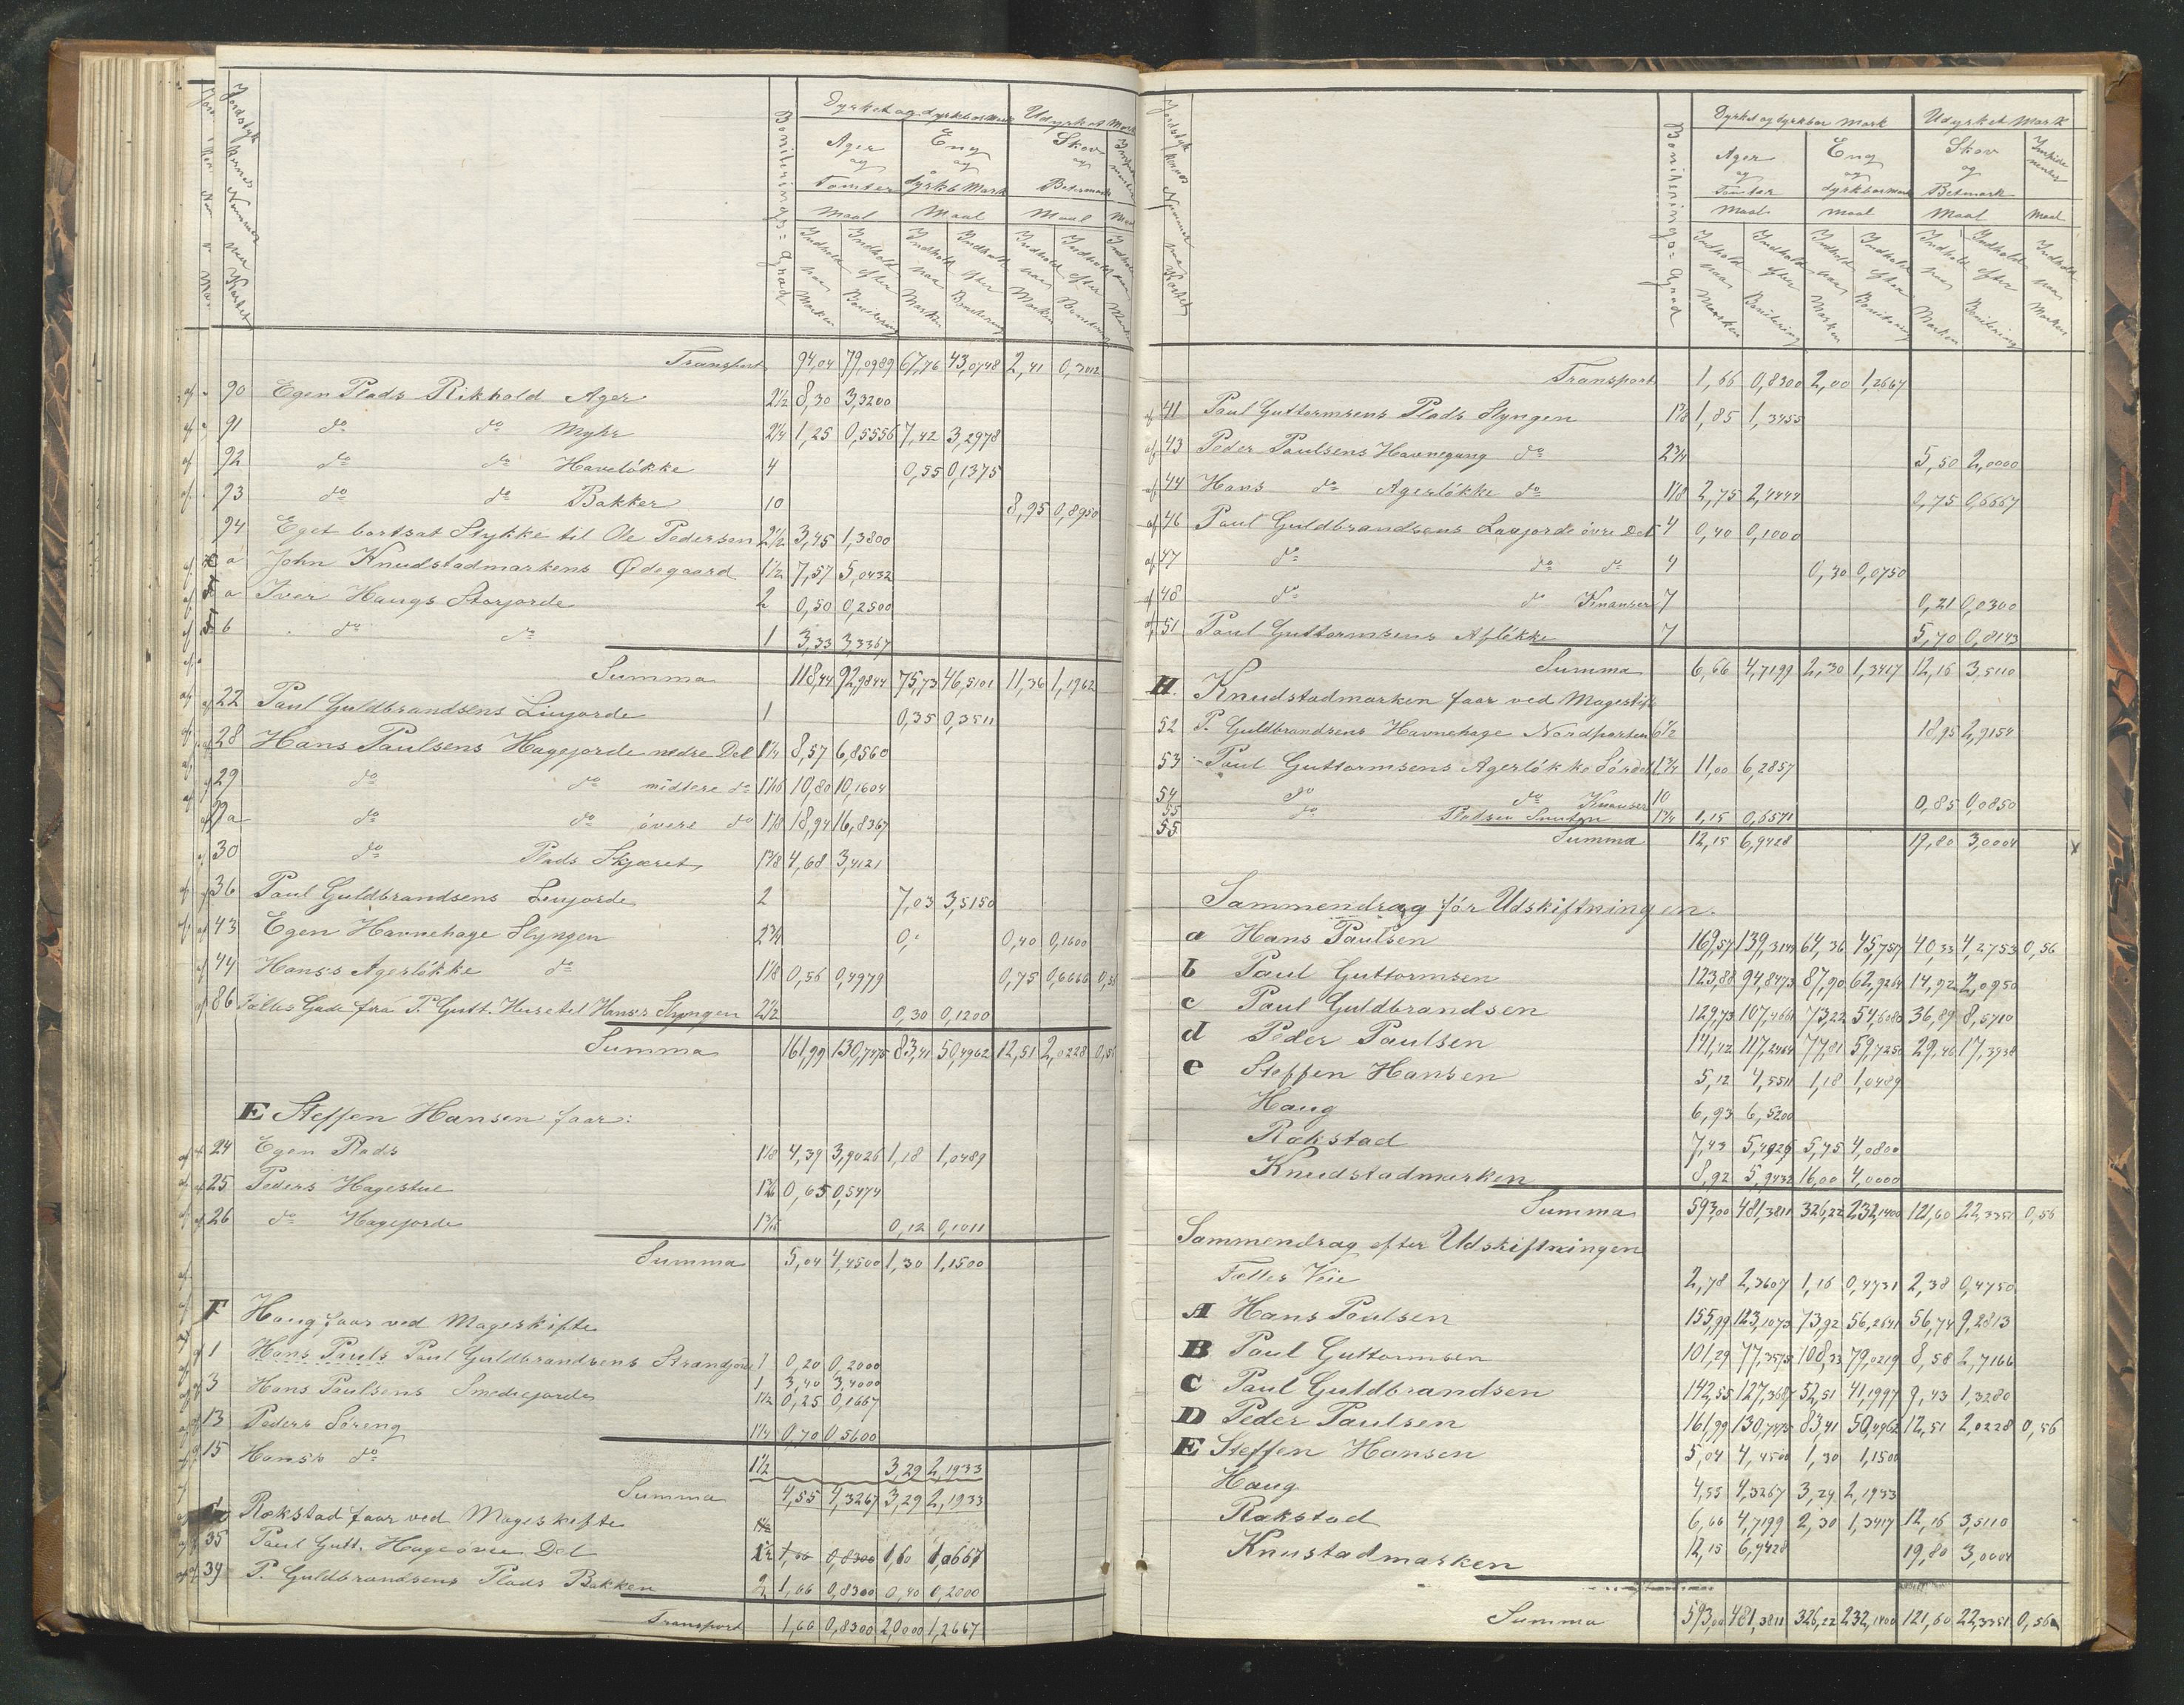 Jordstykkernes Nummer paa Kartet
Boniterings=Grad
Dyrket og dyrkbar Mark
Udyrket Mark
Ager og Tomter
Eng og dyrkb Mark
Skov og Betermark
Maal Maal Maal Maal
Indhold paa Marken
Indhold efter Bonitering
Indhold paa Marken
Indhold efter Bonitering
Indhold paa Marken
Indhold efter Bonitering
Transport 94,04 79,0989 67,76 43,0748 2,41 0,3012
90 Egen Plads Rikhold Ager 2½ 8,30 3,3200
91 do do Myhr 2¼ 1,25 0,5556 7,42 3,2978
92 do do Haveløkke 4 0,55 0,1375
93 do do Bakker 10 8,95 0,8950
94 Eget bortsat Stykke til Ole Pedersen 2½ 3,45 1,3800
a John Knudstadmarkens Ødegaard 1½ 7,57 5,0432
a Iver Haugs Storjorde 2 0,50 0,2500
b do do 1 3,33 3,3367
Summa 118,44 92,9844 75,73 46,5101 11,36 1,1962
22 Paul Guldbrandsens Linjorde 1 0,35 0,3511
28 Hans Paulsens Hagejorde nedre Del 1¼ 8,57 6,8560
29 do do midtere do 1 1/16 10,80 10,1604
do do øvere do 1⅛ 18,94 16,8367
30 do Plads Skjæret 1⅜ 4,68 3,4121
36 Paul Guldbrandsens Linjorde 2 7,03 3,5150
43 Egen Havnehage Slyngen 2¾ 0, 0,40 0,1600
44 Hans's Agerløkke do 1⅛ 0,56 0,4979 0,75 0,6666
86 Fælles Gade fra P. Gutt. Huse til Hans's Slyngen 2½ 0,30 0,1200
Summa 161,99 130,7475 83,41 50,4962 12,51 2,0228
E Steffen Hansen faar:
24 Egen Plads 1⅛ 4,39 3,9026 1,18 1,0489
25 Peders Hagestue 0,65 0,5474
26 do Hagejorde 0,12 0,1011
Summa 5,04 4,4500 1,30 1,1500
F Haug faar ved Mageskifte
1 Hans Pauls Paul Guldbrandsens Strandjorde 1 0,20 0,2000
1 3,40 3,4000
3 Hans Paulsens Smediejorde 1½ 0,25 0,1667
13 Peders Søreng 1¼ 0,70 0,5600
15 Hans's do 1½ 3,29 2,1933
Summa 4,55 4,3267 3,29 2,1933
Rokstad faar ved Mageskifte
35 Paul Gutt. Hage øvre Del 1½ 1,66 0,8300 1,60 1,0667
39 P. Guldbrandsens Plads Bakken 2 1,66 0,8300 0,40 0,2000
Transport 1,66 0,8300 2,000 1,2667
Jordstykkernes Nummer paa Kartet
Boniterings=Grad
Dyrket og dyrkbar Mark
Udyrket Mark
Ager og Tomter
Eng og dyrkbar Mark
Skov og Betmark
Impidementer
Maal Maal Maal Maal
Indhold paa Marken
Indhold efter Bonitering
Indhold paa Marken
Indhold efter Bonitering
Indhold paa Marken
Indhold efter Bonitering
Indhold paa Marken
Transport 1,66 0,8300 2,00 1,2667
af 41 Paul Guttormsens Plads Slyngen 1⅜ 1,85 1,3455
af 43 Peder Paulsens Havnegang do 2¾ 5,50 2,0000
af 44 Hans do Agerløkke do 1⅛ 2,75 2,4444 0,75 0,6667
af 46 Paul Guldbrandsens Laajorde øvre Del 4 0,40 0,1000
af 47 do do do 4 0,30 0,0750
af 48 do do Knauser 7 0,21 0,0300
af 51 Paul Guttormsens Afløkke 7 5,70 0,8143
Summa 6,66 4,7199 2,30 1,3417 12,16 3,5110
H. Knudstadmarken faar ved Mageskift
52 P. Guldbrandsens Havnehage Nordparten 6½ 18,95 2,9154
53 Paul Guttormsens Agerløkke Sørdel 1¾ 11,00 6,2857
54 do do Knauser 10 0,85 0,0850
55 do Pladsen Smuten 1¾ 1,15 0,6571
55 Summa 12,15 6,9428 19,80 3,0004 x
Sammendrag før Udskiftningen.
a Hans Paulsen 169,57 139,3149 64,36 45,7517 40,33 4,2753 0,56
b Paul Guttormsen 123,88 94,8473 87,90 62,9264 14,92 2,0950
c Paul Guldbrandsen 129,73 107,4661 73,22 54,6080 36,89 8,5710
d Peder Paulsen 141,42 117,2464 77,81 59,7250 29,46 17,3938
e Steffen Hansen 5,12 4,5511 1,18 1,0489
Haug 6,93 6,5200
Rokstad 7,43 5,4929 5,75 4,0800
Knudstadmarken 8,92 5,9432 16,00 4,0000
Summa 593,00 481,3811 326,22 232,1400 121,60 22,3351 0,56
Sammendrag efter Udskiftningen
Fælles Veie 2,78 2,3607 1,16 0,4731 2,38 0,4750
A Hans Poulsen 155,99 123,1073 73,92 56,2641 56,74 9,2813
B Paul Guttormsen 101,29 77,3575 108,33 79,0219 8,58 2,7166
C Paul Guldbrandsen 142,55 127,3687 52,51 41,1997 9,43 1,3280
D Peder Paulsen 161,99 130,7475 83,41 50,4962 12,51 2,0228 0,56
E Steffen Hansen 5,04 4,4500 1,30 1,1500
Haug 4,55 4,3267 3,29 2,1933
Rokstad 6,66 4,7199 2,30 1,3417 12,16 3,5110
Knustadmarken 12,15 6,9428 19,80 3,0004
Summa 593,00 481,3811 326,22 232,1400 121,60 22,3351 0,56